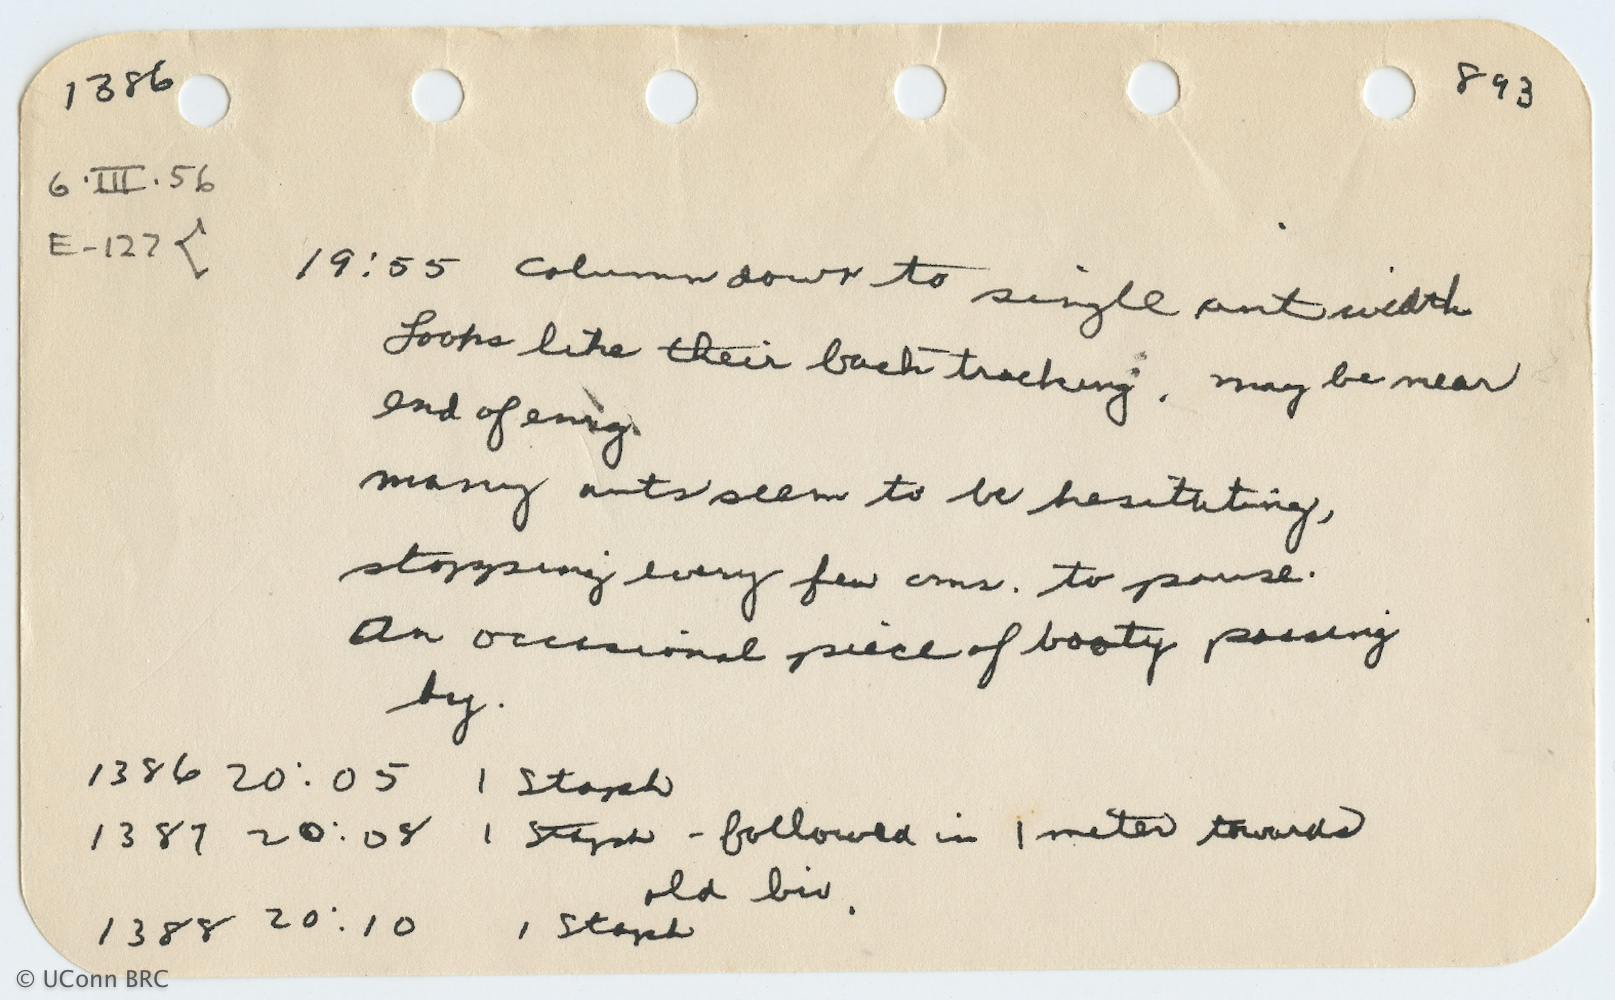 1386 893
6·III·56
E-127
19:55 column down to single ant width
Looks like their back tracking, may be near
end of emig.
many ants seem to be hesitating,
stopping every few cms. to pause.
An occasional piece of booty passing
by.
1386 20:05 1 Staph
1387 20:08 1 Staph - followed in 1 meter towards
old biv.
1388 20:10 1 Staph
© UConn BRC